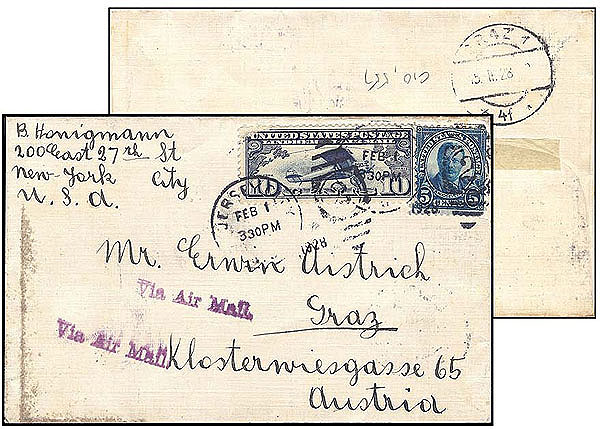 B. Honigmann
200 East 27th St
New-York City
U. S. A.
UNITED STATES POSTAGE
10 10
5 5
JERSEY
FEB 1
330PM
1928
FEB 1
330PM
Mr. Erwin Aistrich
Graz
Klosterwiesgasse 65
Austria
Via Air Mail.
Via Air Mail.
GRAZ 1